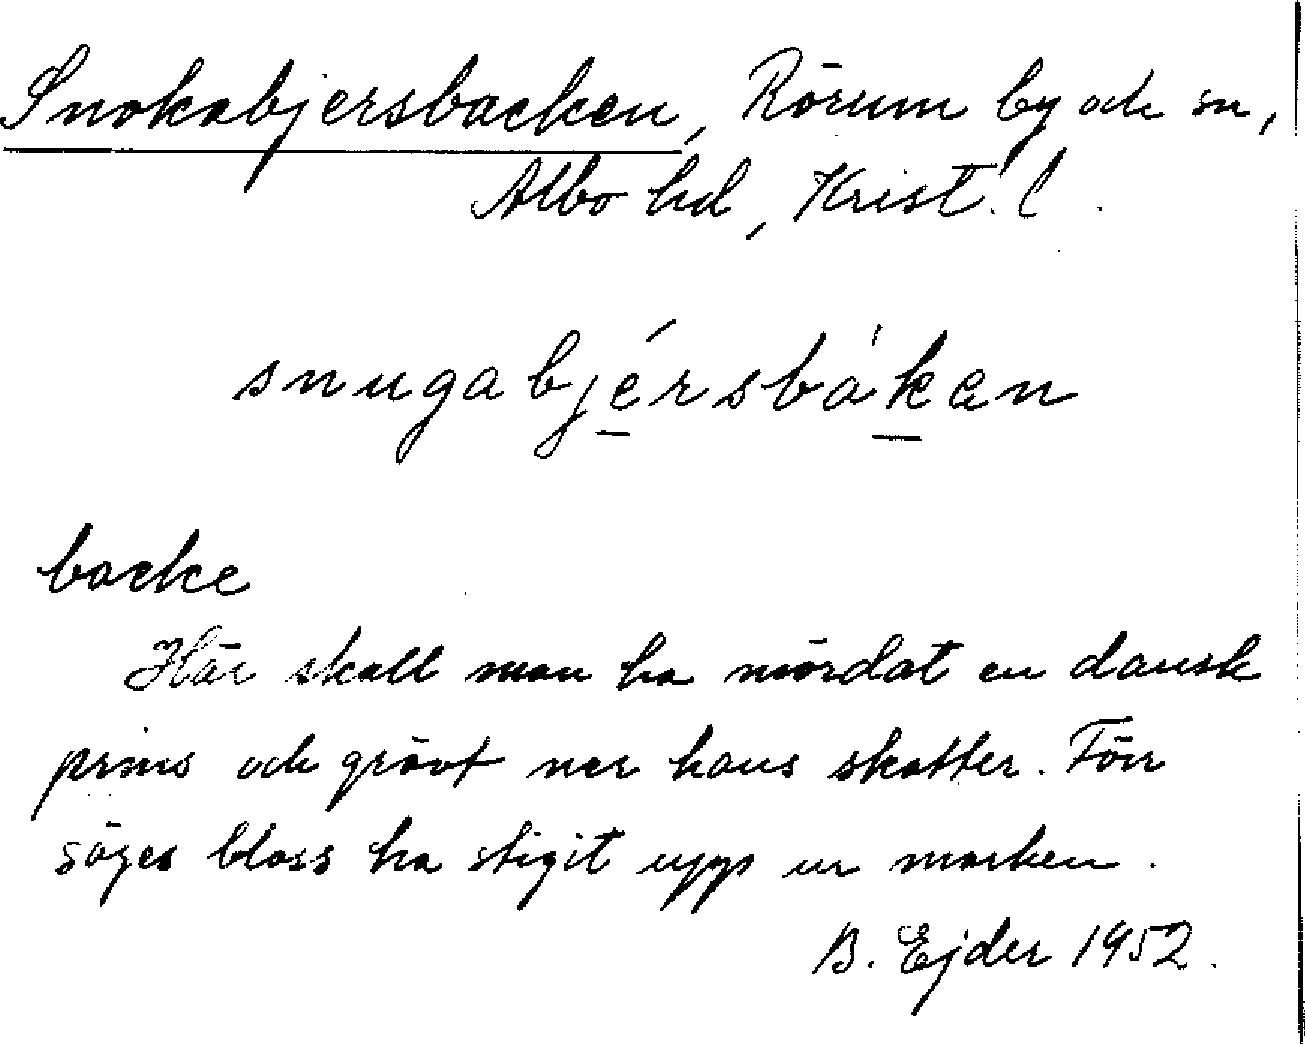 Snokabjersbacken, Rörum by och sn,
Albo hd, Krist. l.
snugabjérsbáken
backe
Här skall man ha mördat en dansk
prins och grävt ner hans skatter. Förr
säges bloss ha stigit upp ur marken.
B. Ejder 1952.